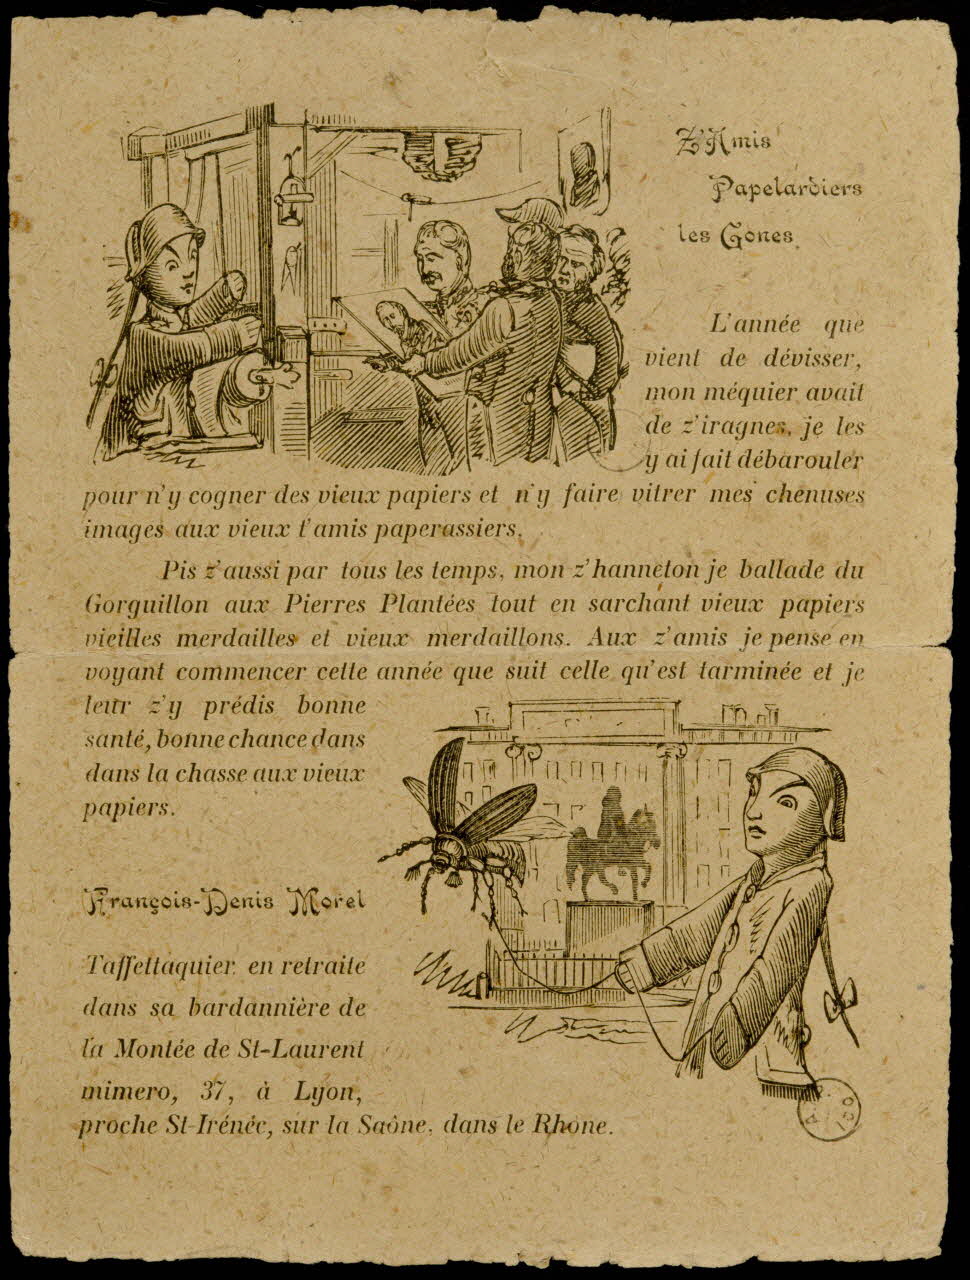 Z'Amis
Papelardiers
les Gones.
L'année que
vient de dévisser,
mon méquier avait
de z'iragnes, je les
y ai fait débarouler
pour n'y cogner des vieux papiers et n'y faire vitrer mes chenuses
images aux vieux t'amis paperassiers.
Pis z'aussi par tous les temps, mon z'hanneton je ballade du
Gorguillon aux Pierres Plantées tout en sarchant vieux papiers
vieilles merdailles et vieux merdaillons. Aux z'amis je pense en
voyant commencer cette année que suit celle qu'est tarminée et je
leur z'y prédis bonne
santé, bonne chance dans
dans la chasse aux vieux
papiers.
François-Denis Morel
Taffettaquier en retraite
dans sa bardannière de
la Montée de St-Laurent
mimero, 37, à Lyon,
proche St-Irénée, sur la Saône, dans le Rhone.